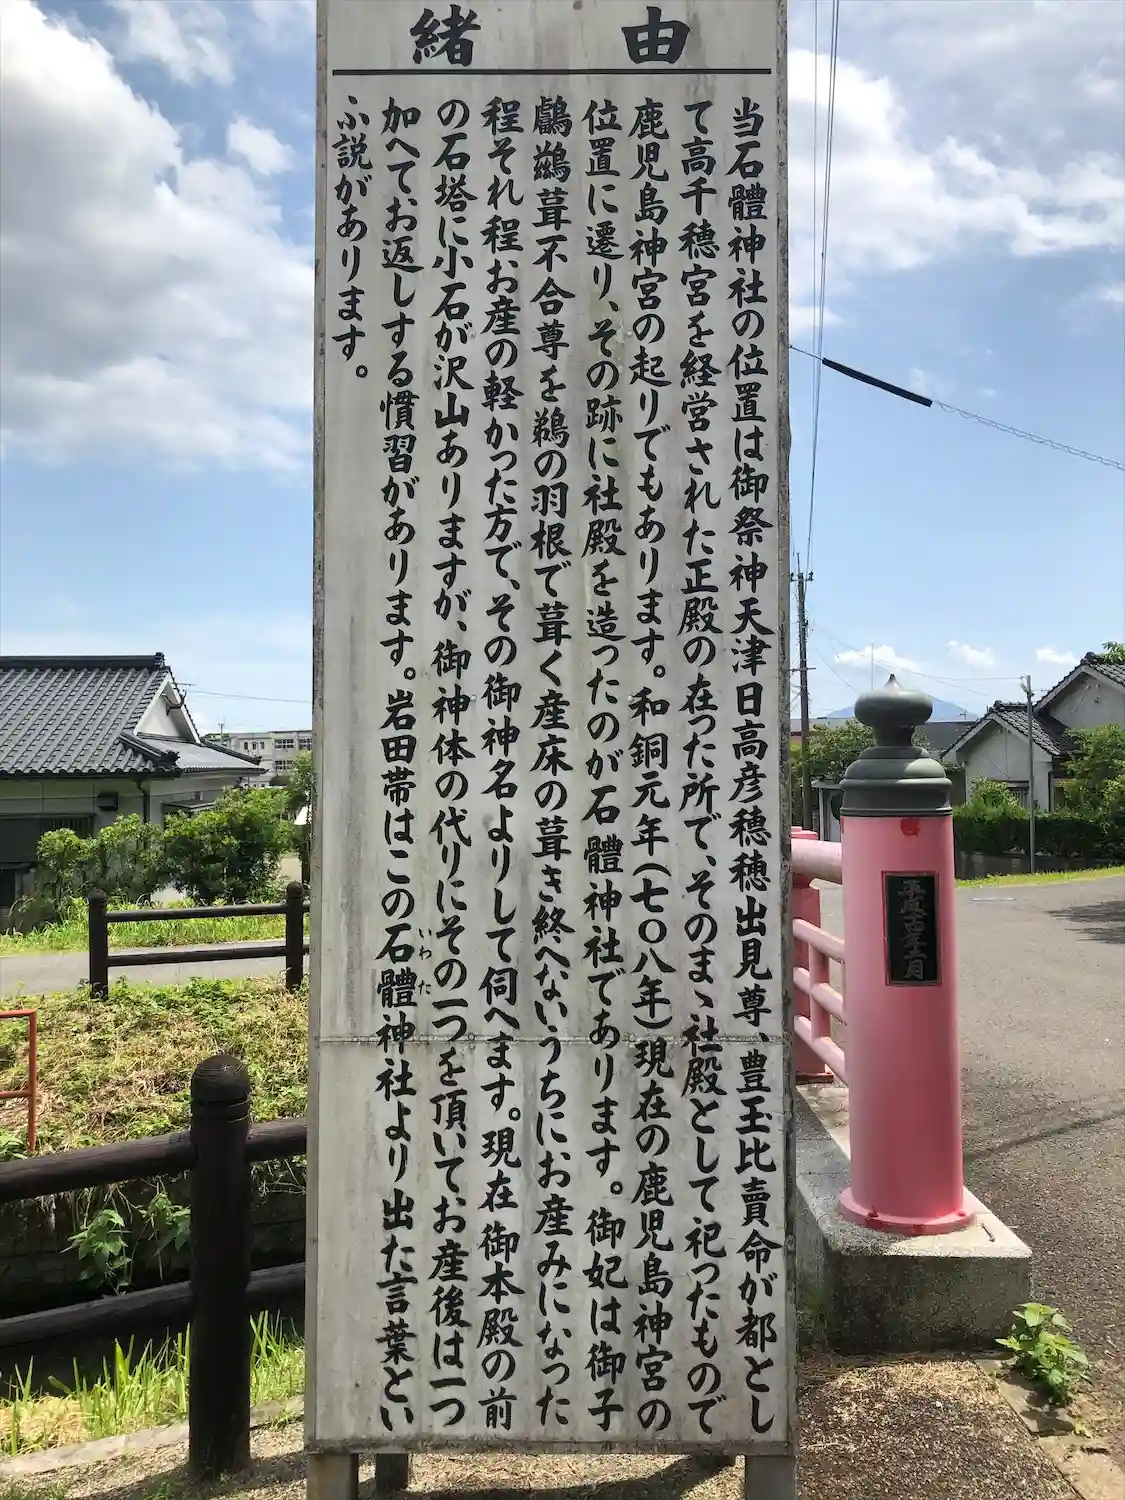 由緒
当石體神社の位置は御祭神天津日高彦穂穂出見尊、豊玉比賣命が都とし
て高千穂宮を経営された正殿の在った所で、そのまゝ社殿として祀ったもので
鹿児島神宮の起りでもあります。和銅元年(七〇八年)現在の鹿児島神宮の
位置に遷り、その跡に社殿を造ったのが石體神社であります。御妃は御子
鸕鷀葺不合尊を鵜の羽根で葺く産床の葺き終へないうちにお産みになった
程それ程お産の軽かった方で、その御神名よりして伺へます。現在御本殿の前
の石塔に小石が沢山ありますが、御神体の代りにその一つを頂いてお産後は一つ
加へてお返しする慣習があります。岩田帯はこの石體神社より出た言葉とい
いわた
ふ説があります。